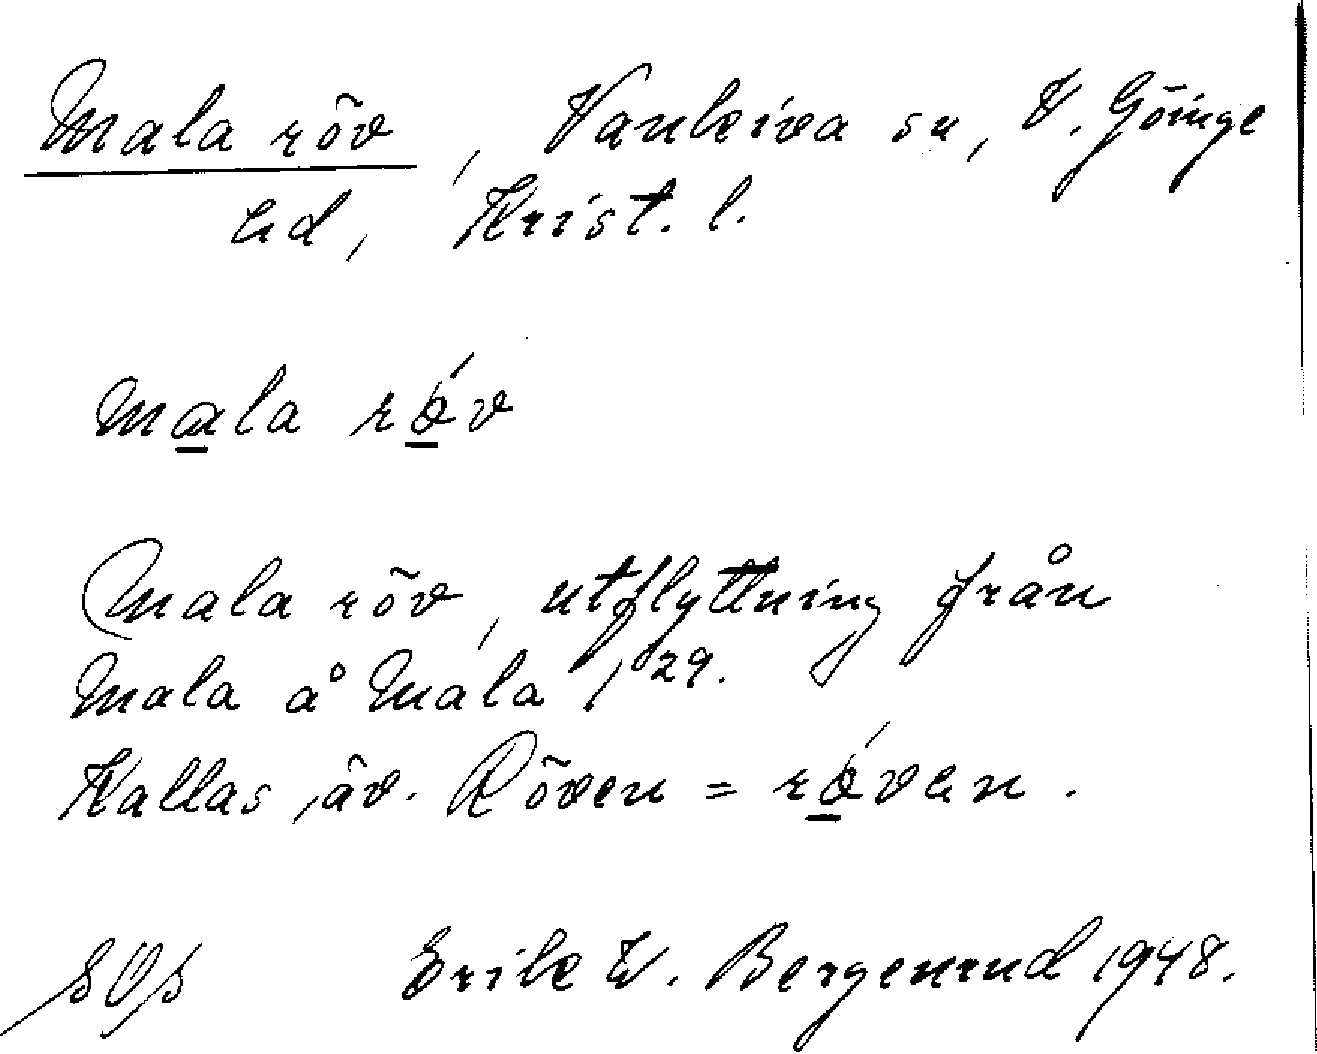 Mala röv, Vankiva sn, V. Göinge
hd, Krist. l.
mala röv
Mala röv, utflyttning från
Mala å Mala 1/29.
Kallas äv. Röven = röven.
SOS Erik W. Bergenrud 1948.